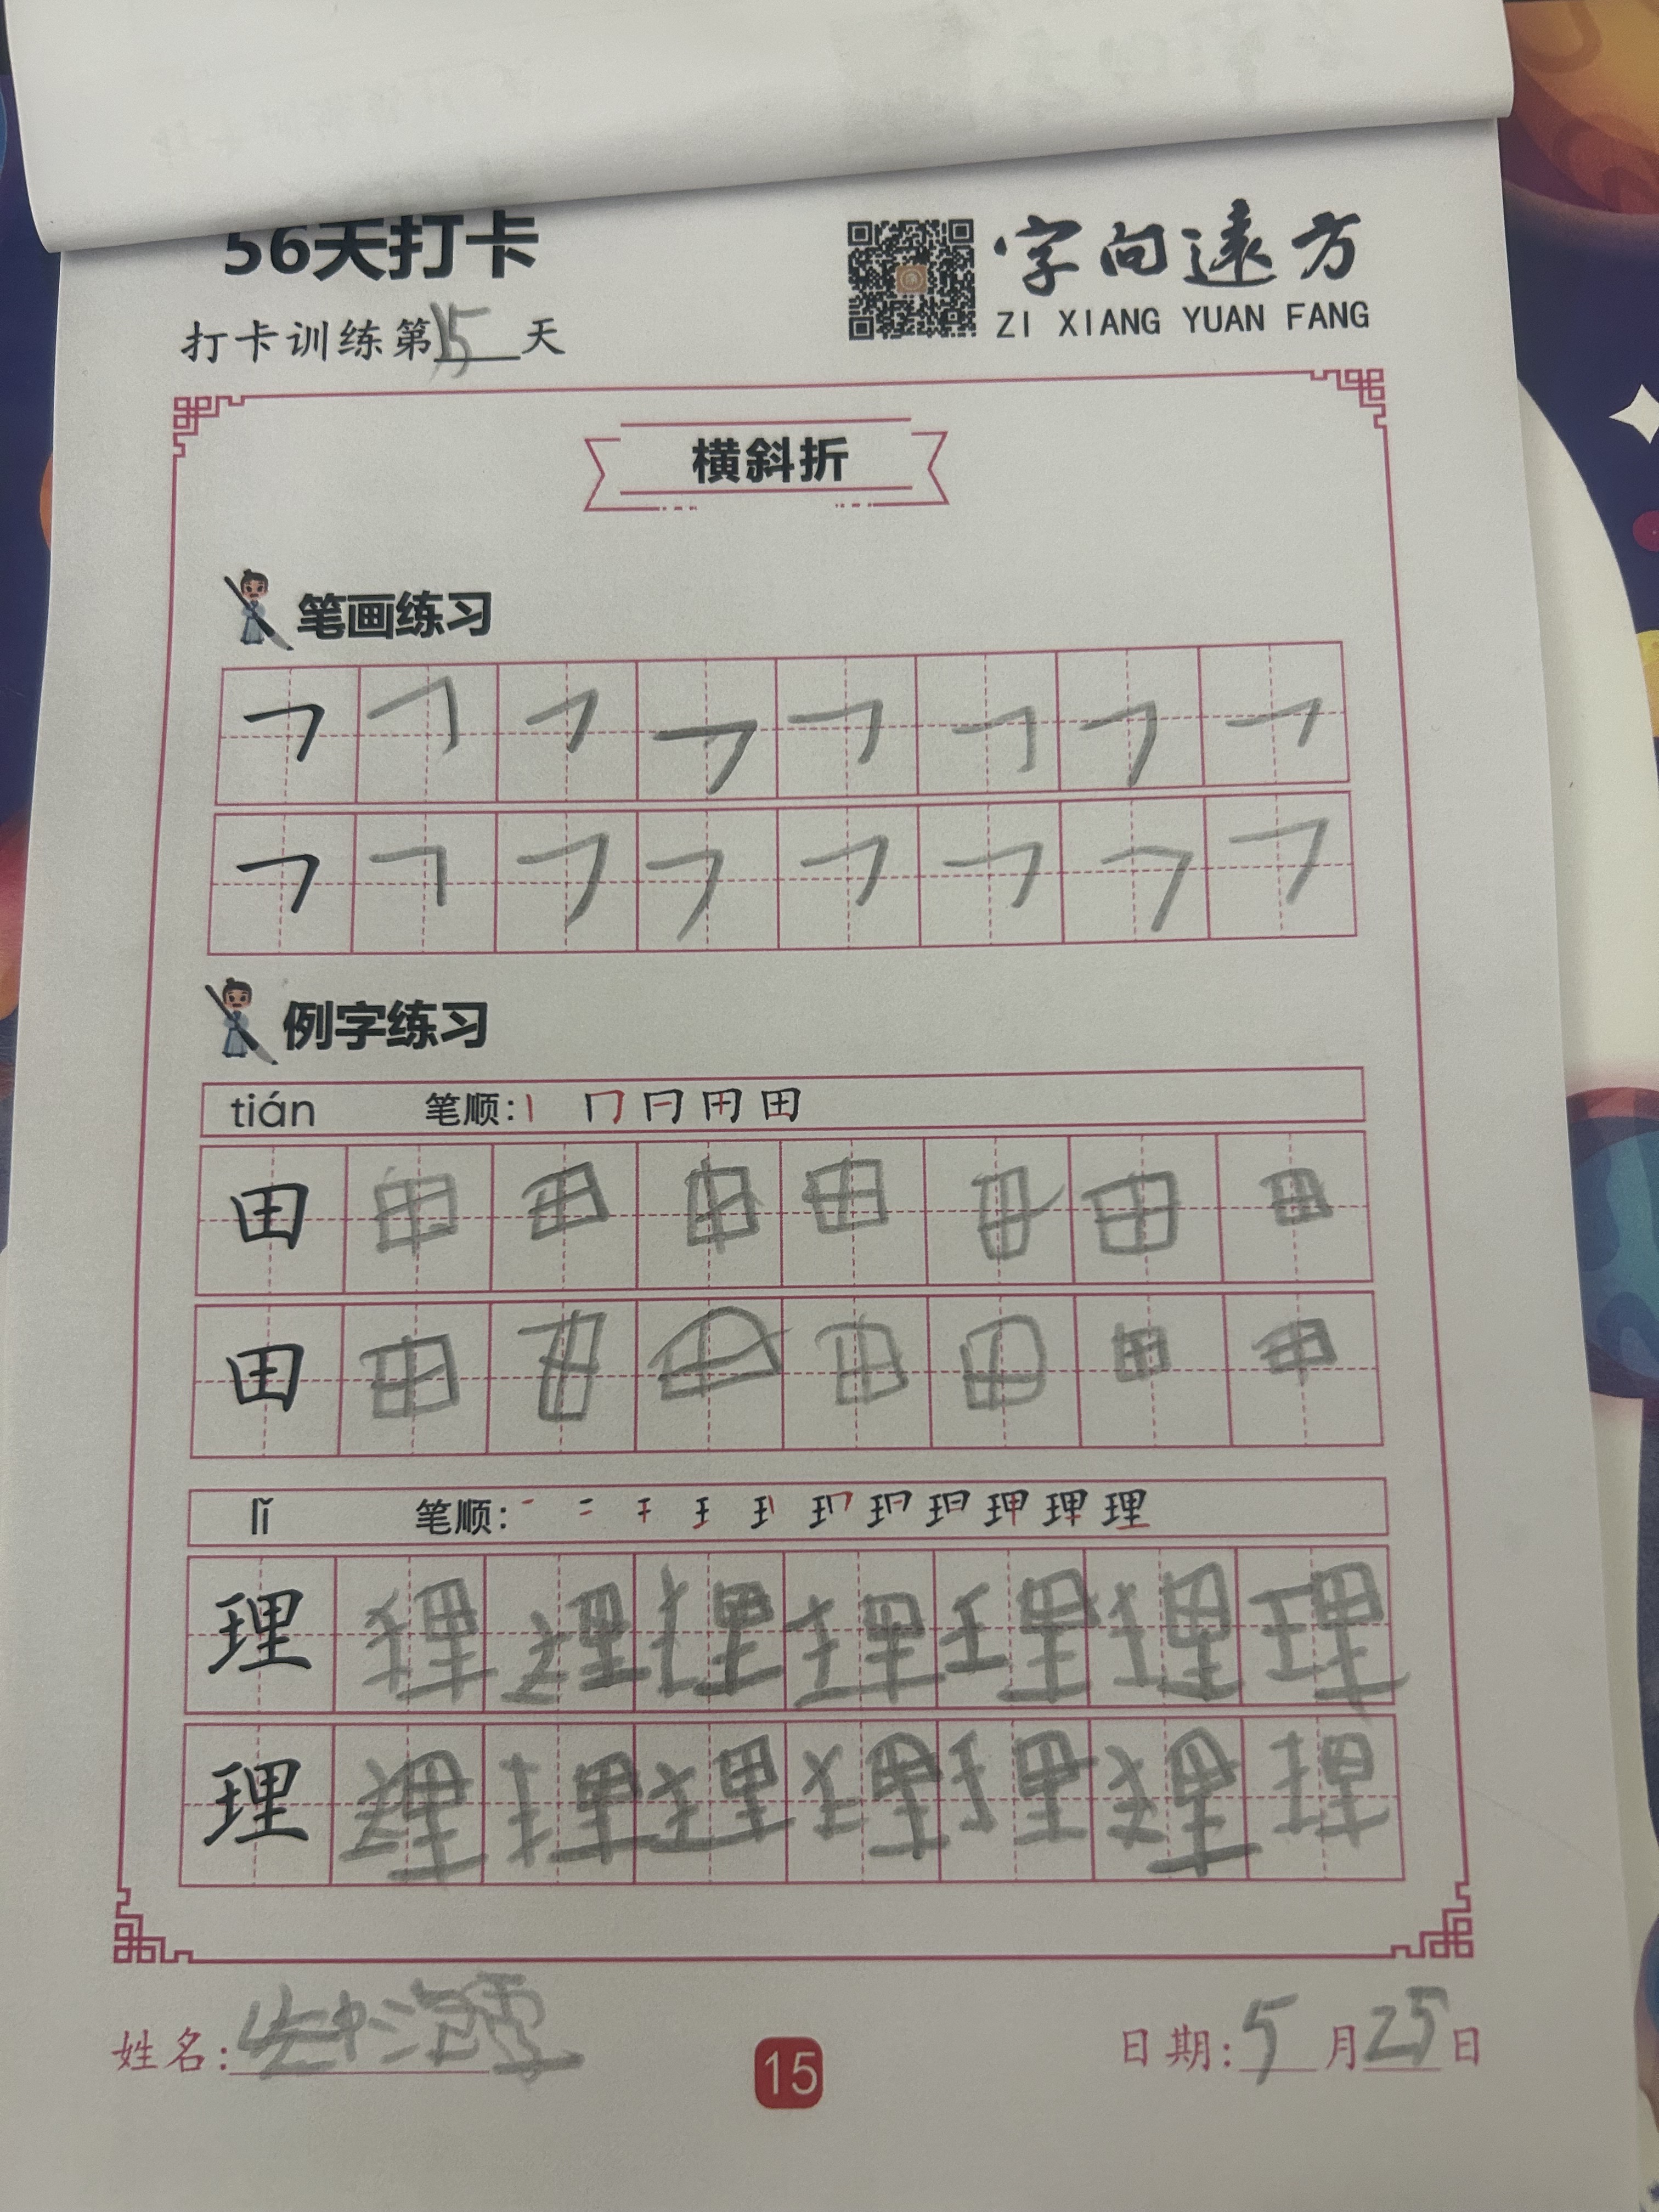 56天打卡
字向遠方
ZI XIANG YUAN FANG
打卡训练第15天
横斜折
笔画练习
㇕ ㇕ ㇕ ㇕ ㇕ ㇕ ㇕ ㇕
㇕ ㇕ ㇕ ㇕ ㇕ ㇕ ㇕ ㇕
例字练习
tián 笔顺: 丨 冂 日 田 田
田 田 田 田 田 田 田 田
田 田 田 田 田 田 田 田
lǐ 笔顺:
理 理 理 理 理 理 理 理
理 理 理 理 理 理 理 理
姓名:
15
日期: 5 月 25 日